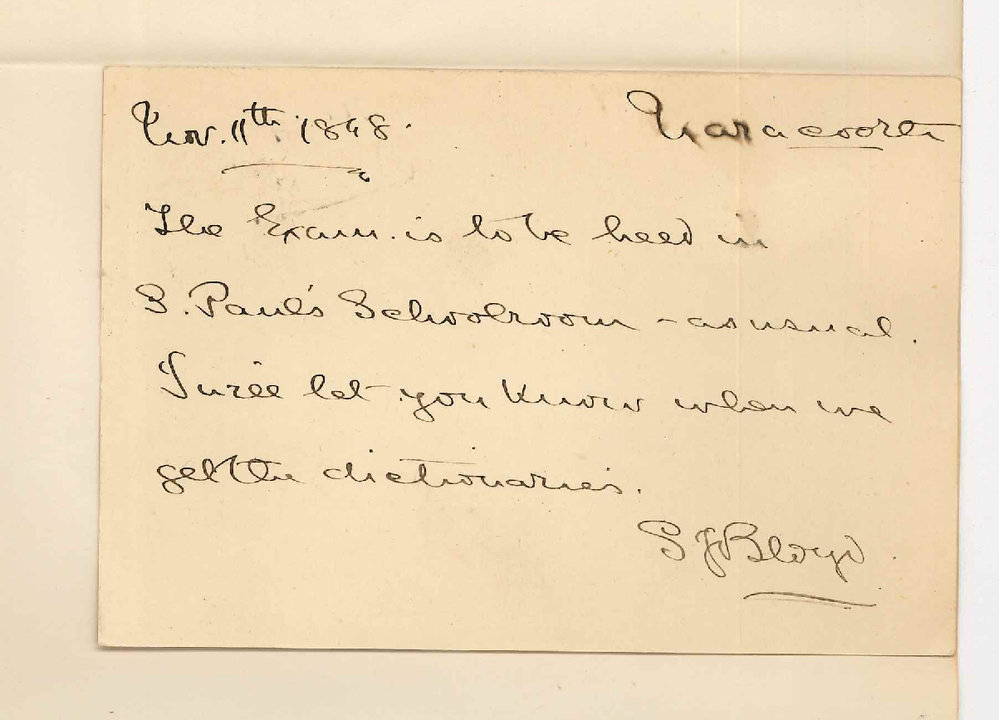 Nov. 11th 1898. Naracoorte
The Exam. is to be held in
S. Paul's Schoolroom - as usual.
I will let you know when we
get the dictionaries.